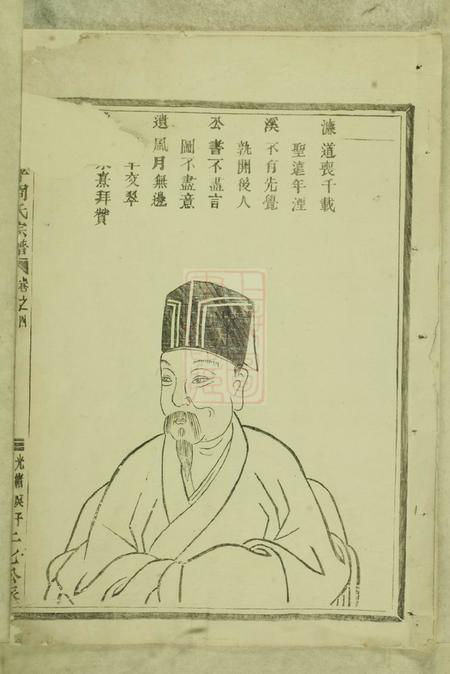 濂 道喪千載
聖遠年湮
溪 不有先覺
孰開後人
公 書不盡言
圖不盡意
遺 風月無邊
草交翠
熹拜贊
周氏宗譜 卷之四
光緒